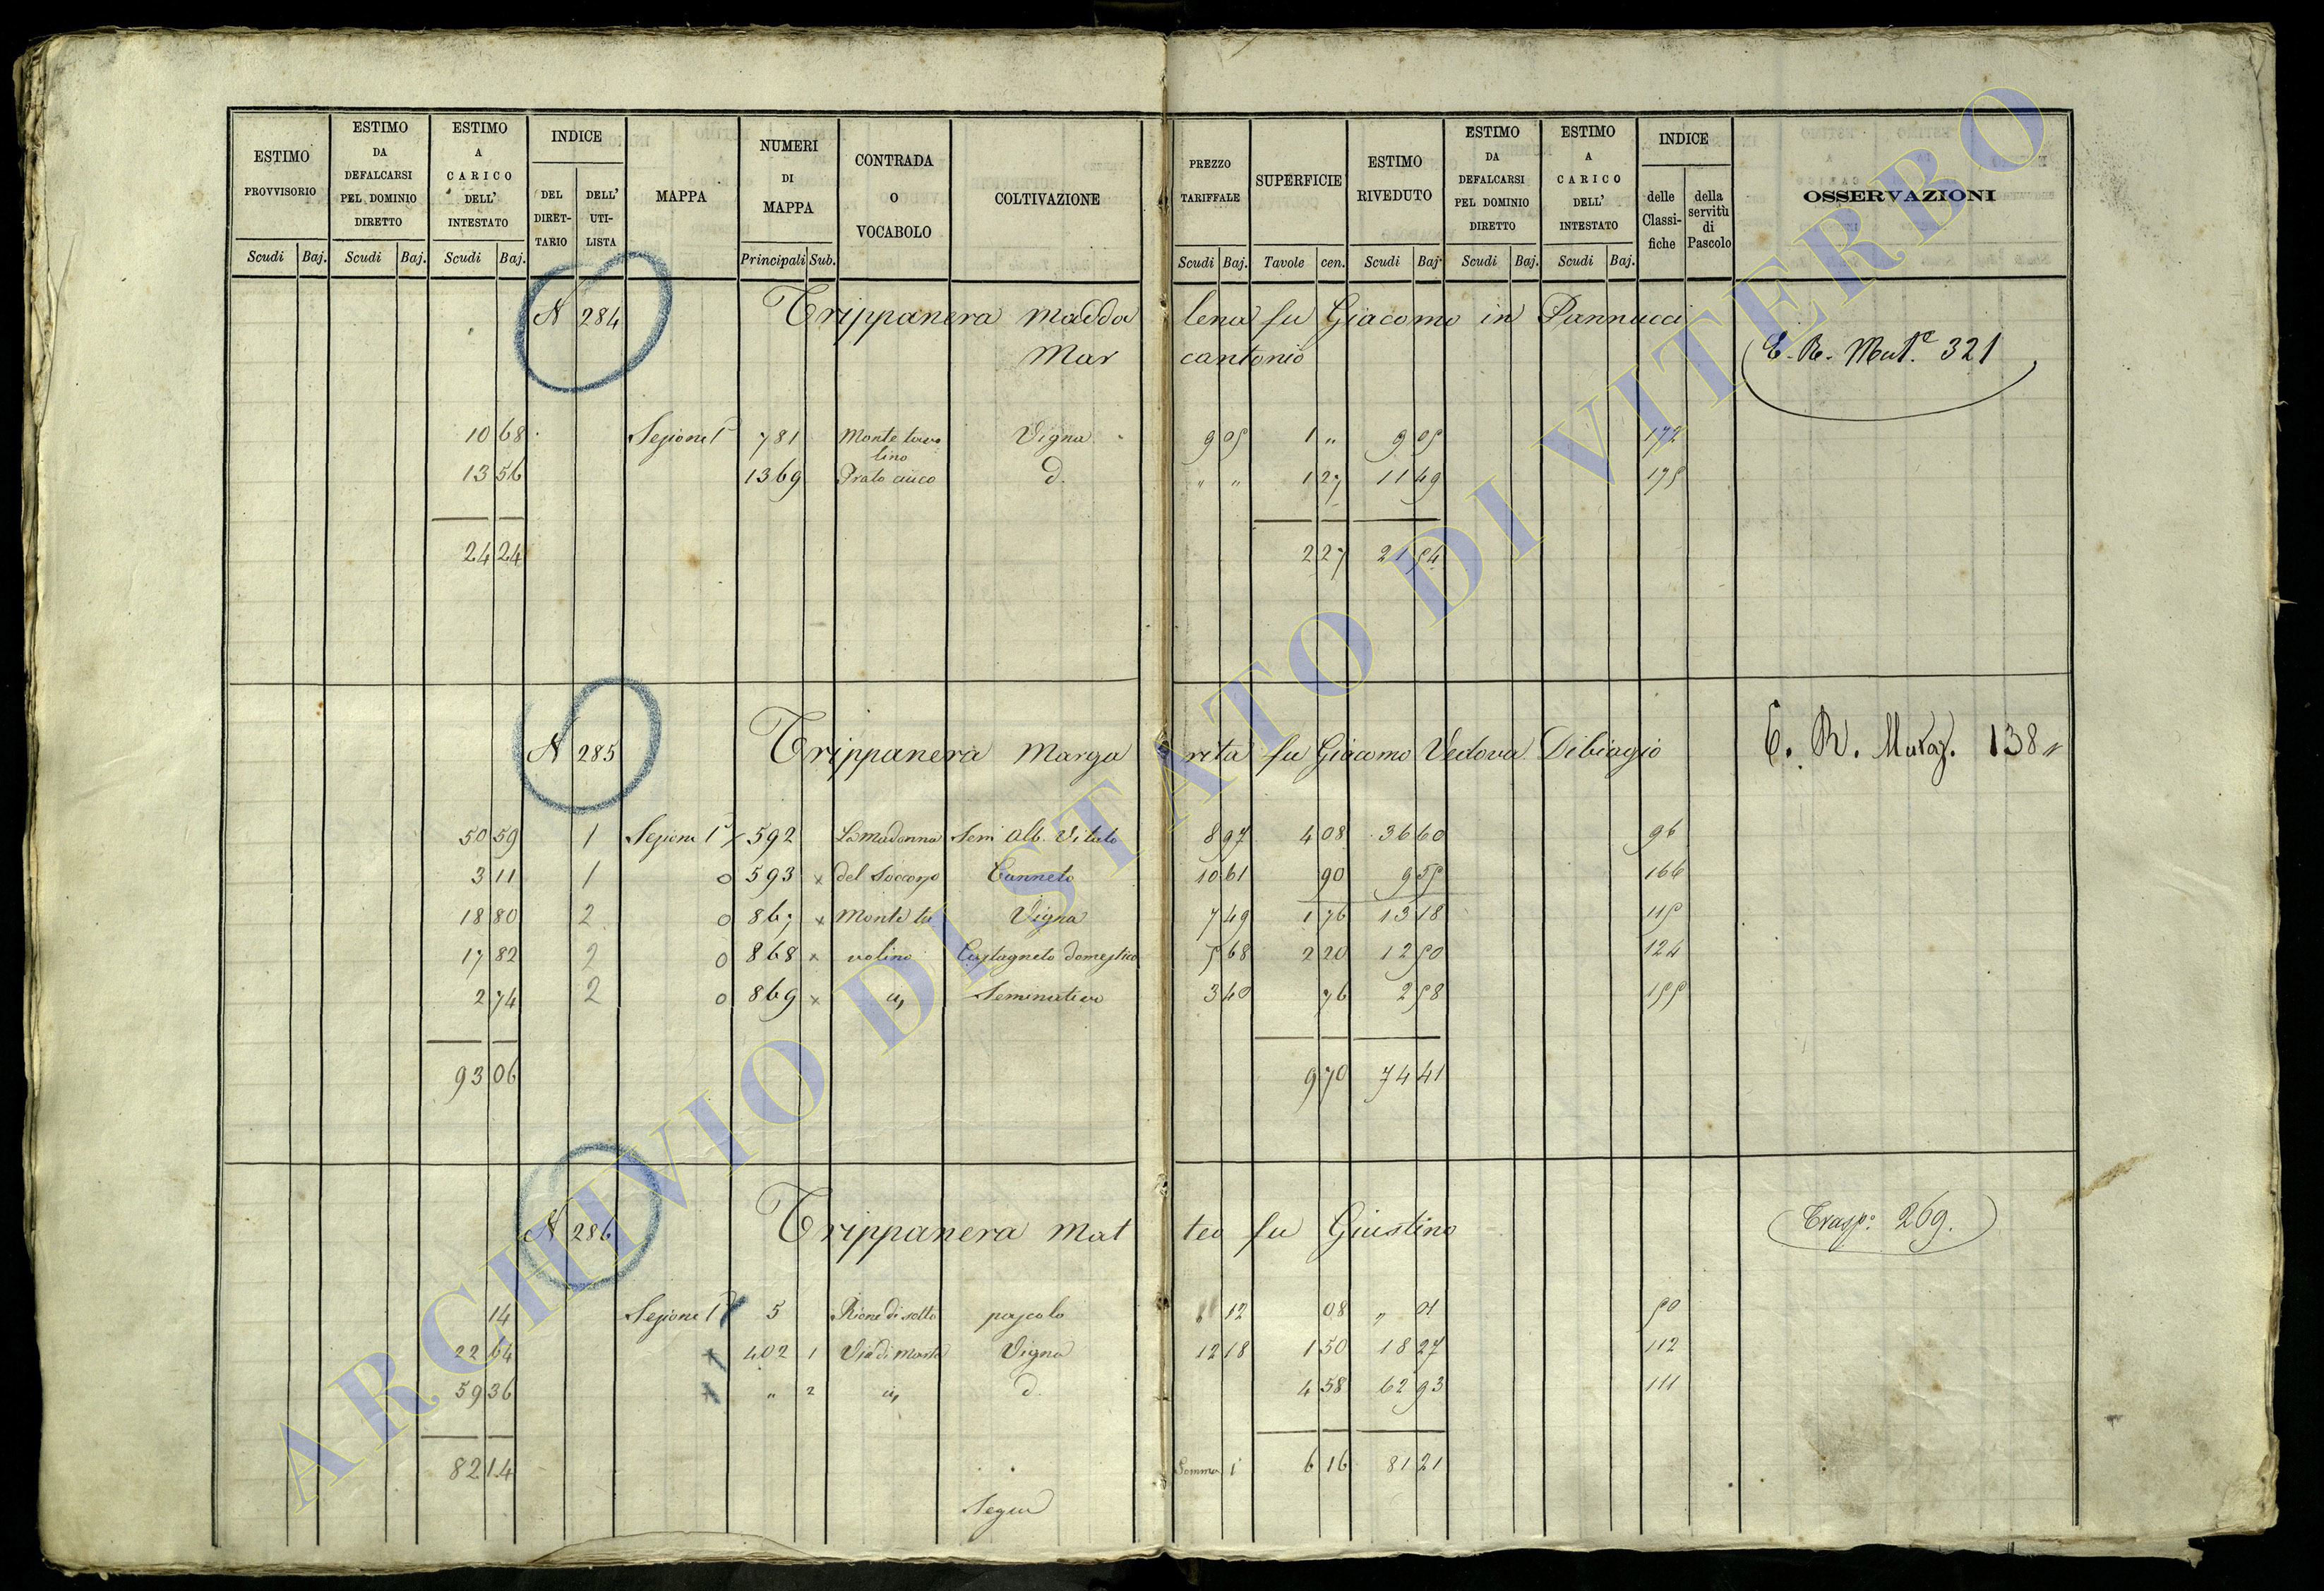 ESTIMO PROVVISORIO | ESTIMO DA DEFALCARSI PEL DOMINIO DIRETTO | ESTIMO A CARICO DELL' INTESTATO | INDICE DEL DIRETTARIO | DELL' UTILISTA | MAPPA | NUMERI DI MAPPA | CONTRADA O VOCABOLO | COLTIVAZIONE | PREZZO TARIFFALE | SUPERFICIE | ESTIMO RIVEDUTO | ESTIMO DA DEFALCARSI PEL DOMINIO DIRETTO | ESTIMO A CARICO DELL' INTESTATO | INDICE delle Classifiche | della servitù di Pascolo | OSSERVAZIONI
Scudi | Baj. | Scudi | Baj. | Scudi | Baj. | Principali | Sub. | Scudi | Baj. | Tavole | cen. | Scudi | Baj. | Scudi | Baj. | Scudi | Baj.
N 284 Trippanera Maddalena fu Giacomo in Pannucci
Marcantonio
E. R. Mat.e 321
10 68 Sezione 1ª 781 Monte tavolino Vigna 9 05 1 " 9 05 172
13 56 1369 Prato d. " " 1 27 11 49 175
24 24 2 27 21 54
N 285 Trippanera Margarita fu Giacomo Vedova Dibiagio E. R. 138
50 59 1 Sezione 1ª 592 La Madonna Sem Alb. Vitato 8 97 4 08 36 60 96
3 11 1 o 593 x del Soccorso Canneto 10 61 90 9 55 166
18 80 2 o 867 x Monte ta Vigna 7 49 1 76 13 18 115
17 82 2 o 868 x volino Castagneto domestico 5 68 2 20 12 50 124
2 74 2 o 869 x Seminativo 3 40 76 2 58 155
93 06 9 70 74 41
N 286 Trippanera Matteo fu Giustino Trasp: 269.
14 Sezione 1ª 5 Rione di sotto pascolo 12 08 " 01 50
22 64 402 1 Via di Vigna 12 18 1 50 18 27 112
59 36 " 2 d. 4 58 62 93 111
82 14 Somma 6 16 81 21
Segue
ARCHIVIO DI STATO DI VITERBO